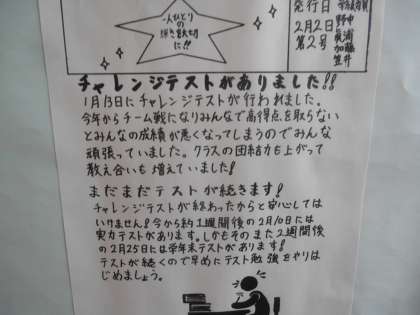 一人ひとりの
輝き大切
に!!
発行日
2月2日
第2号
野中
加藤
笠井
チャレンジテストがありました!!
1月13日にチャレンジテストが行われました。
今年からチーム戦になりみんなで高得点を取らない
とみんなの成績が悪くなってしまうのでみんな
頑張っていました。クラスの団結力も上がって
教え合いも増えていました!
まだまだテストが続きます!
チャレンジテストが終わったからと安心しては
いけません!今から約1週間後の2月10日には
実力テストがあります。しかもそのまた2週間後
の2月25日には学年末テストがあります!
テストが続くので早めにテスト勉強をやりは
じめましょう。